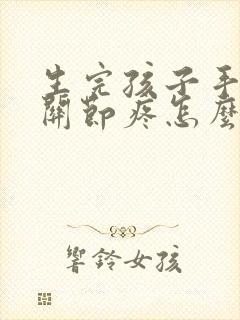 生完孩子手
關節疼怎麼
響鈴女孩